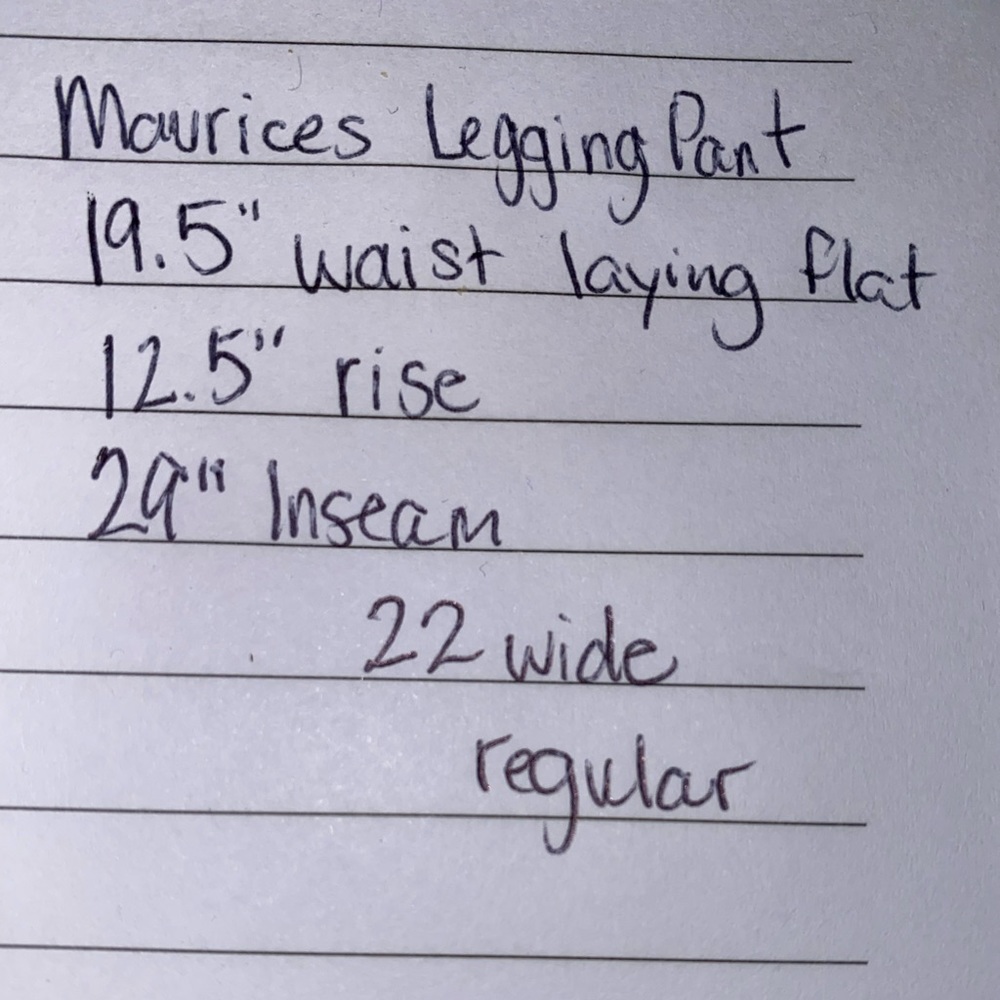 Maurices Legging Pant
19.5" waist laying flat
12.5" rise
29" Inseam
22 wide
regular